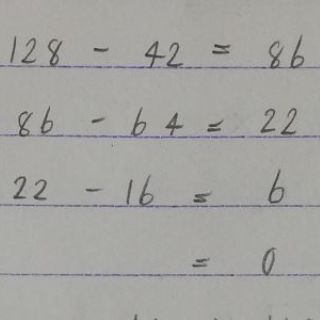 128 - 42 = 86
86 - 64 = 22
22 - 16 = 6
= 0